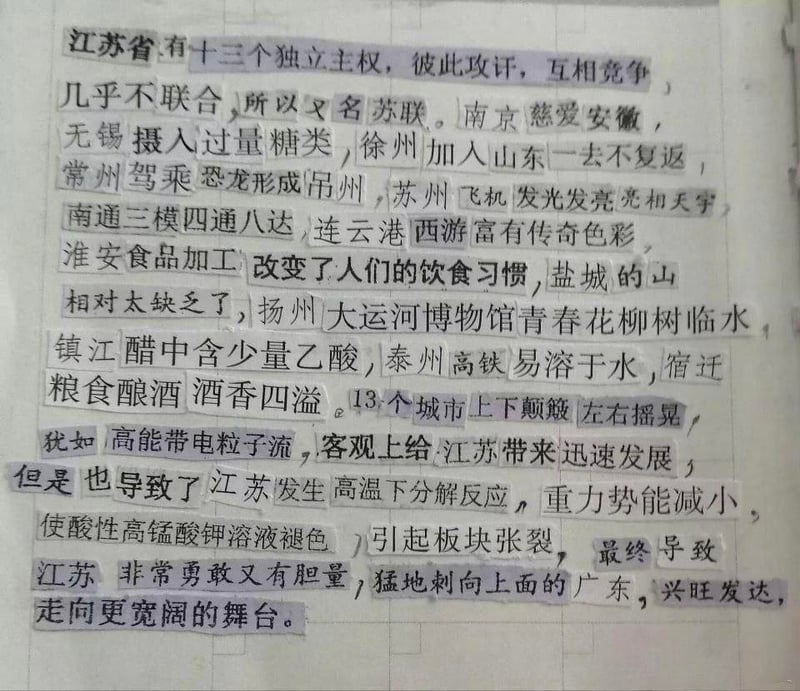 江苏省有十三个独立主权，彼此攻讦，互相竞争，
几乎不联合，所以又名苏联。南京慈爱安徽，
无锡摄入过量糖类，徐州加入山东一去不复返，
常州驾乘恐龙形成吊州，苏州飞机发光发亮亮相天宇，
南通三模四通八达，连云港西游富有传奇色彩，
淮安食品加工改变了人们的饮食习惯，盐城的山
相对太缺乏了，扬州大运河博物馆青春花柳树临水，
镇江醋中含少量乙酸，泰州高铁易溶于水，宿迁
粮食酿酒酒香四溢。13个城市上下颠簸左右摇晃，
犹如高能带电粒子流，客观上给江苏带来迅速发展，
但是也导致了江苏发生高温下分解反应，重力势能减小，
使酸性高锰酸钾溶液褪色，引起板块张裂，最终导致
江苏非常勇敢又有胆量，猛地刺向上面的广东，兴旺发达，
走向更宽阔的舞台。